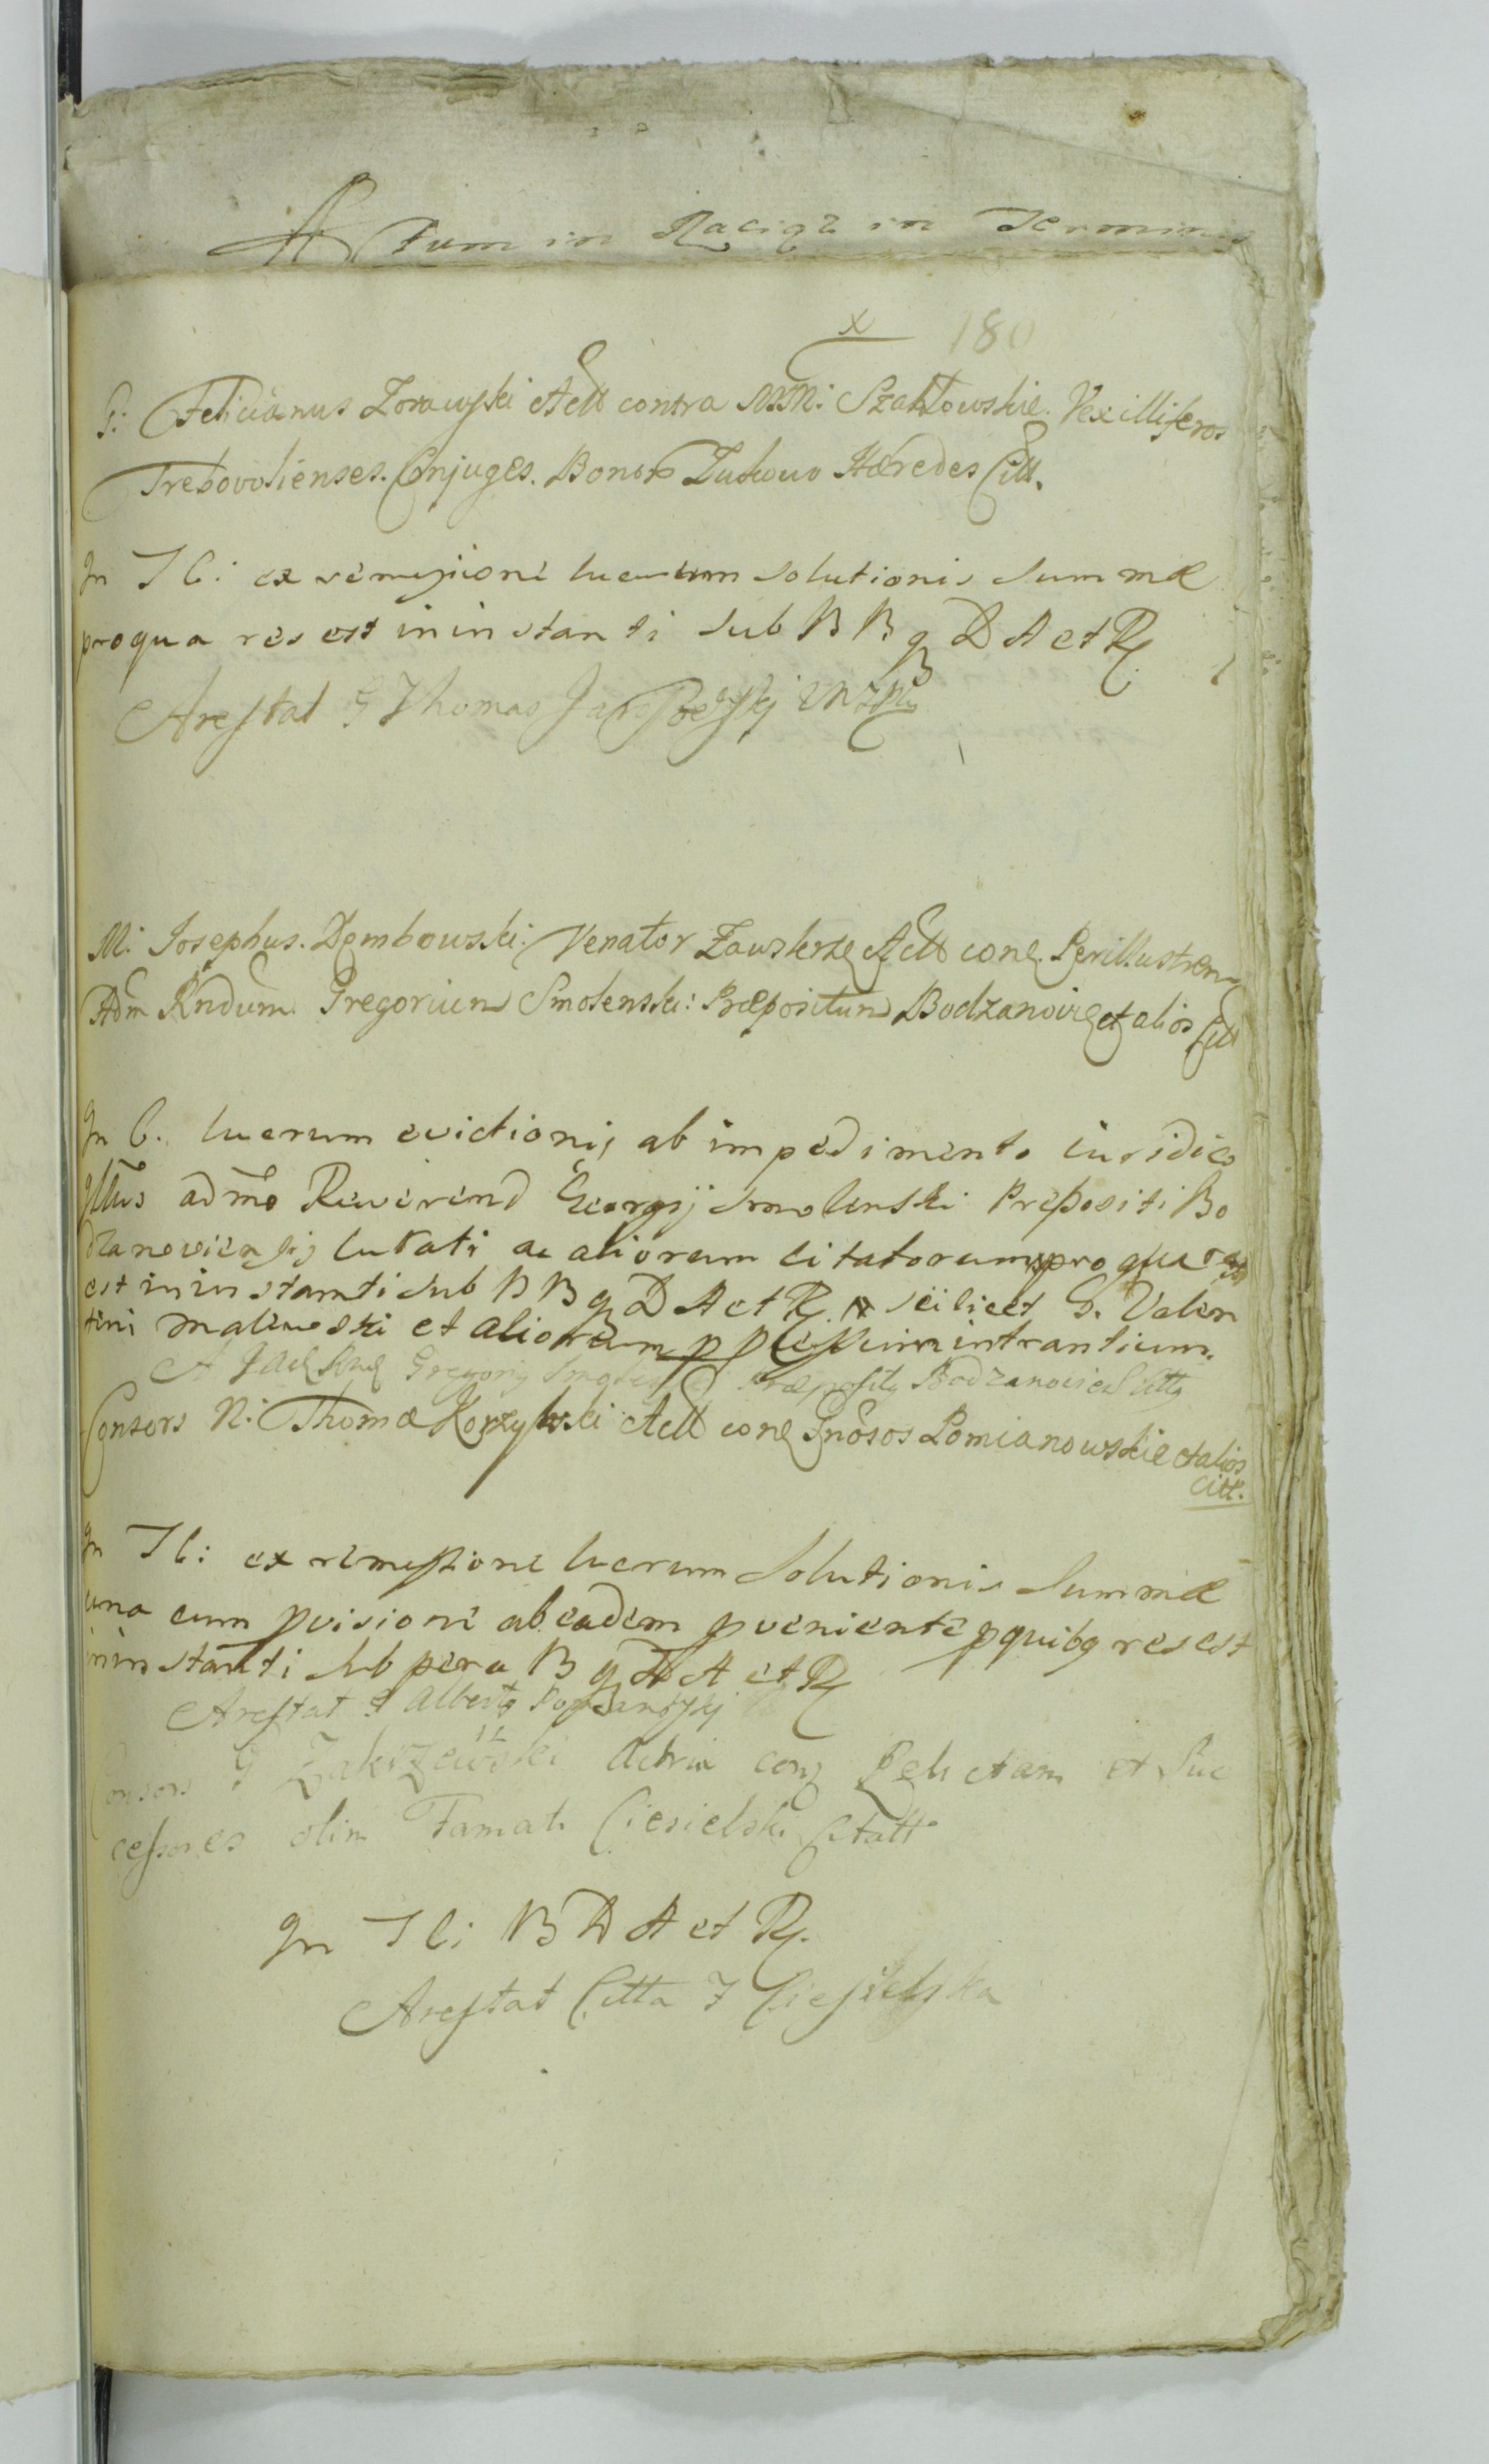 Actum in Raciąż in Terminis
x 180
G: Felicianus Zorawski Actt contra MM: Szabłowskie Vexilliferos
Trebovolienses. Conjuges. Bonor Zukowo Hæredes Citt.
In T C: ex remissione lucrum solutionis summæ
pro qua res est in instanti sub B B q D A et R
Arestat G Thomas
M: Josephus. Dembowski. Venator Zawskrze Actt cone Perillustrem
Adm Rndum Gregorium Smolenski: Præpositum Bodzanovie et alios Citt
In C. lucrum evictionis ab impedimento iuridico
Illus adm̃o Reverend Georgij Smolenski Prepositi Bo
dzanoviensis citati ac aliorum citatorum pro qua res
est in instanti sub B B q D A et R scilicet G. Valen
tini Malewski et aliorum intrantium.
A Gregorii Præposity Bodzanovien Citty
Consors N: Thomæ Korzybski Actt cone Gnosos Lomianowskie et alios
Citt.
In T C: ex remissione lucrum solutionis summæ
una cum pvisione ab eadem pveniente p quibq res est
in instanti sub pera B q D A et R
Arestat G Albertq
Consors G Zakrzewski Actrix conq Relictam et Suc
cessores olim Famati Ciesielski Citatt
In T C: B D A et R.
Arestat Citta F Ciesielska